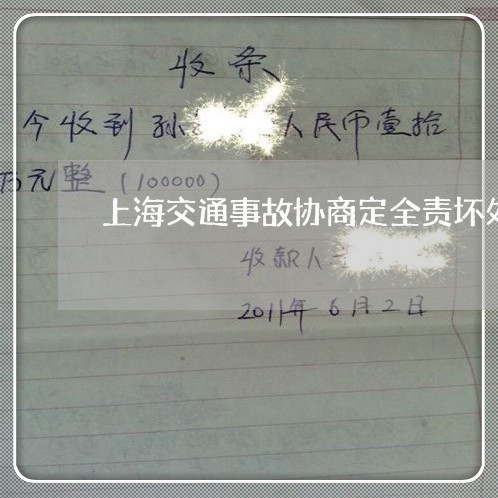 收条
今收到孙 人民币壹拾
万元整（100000）
上海交通事故协商定全责坏处
收款人
2011年6月2日